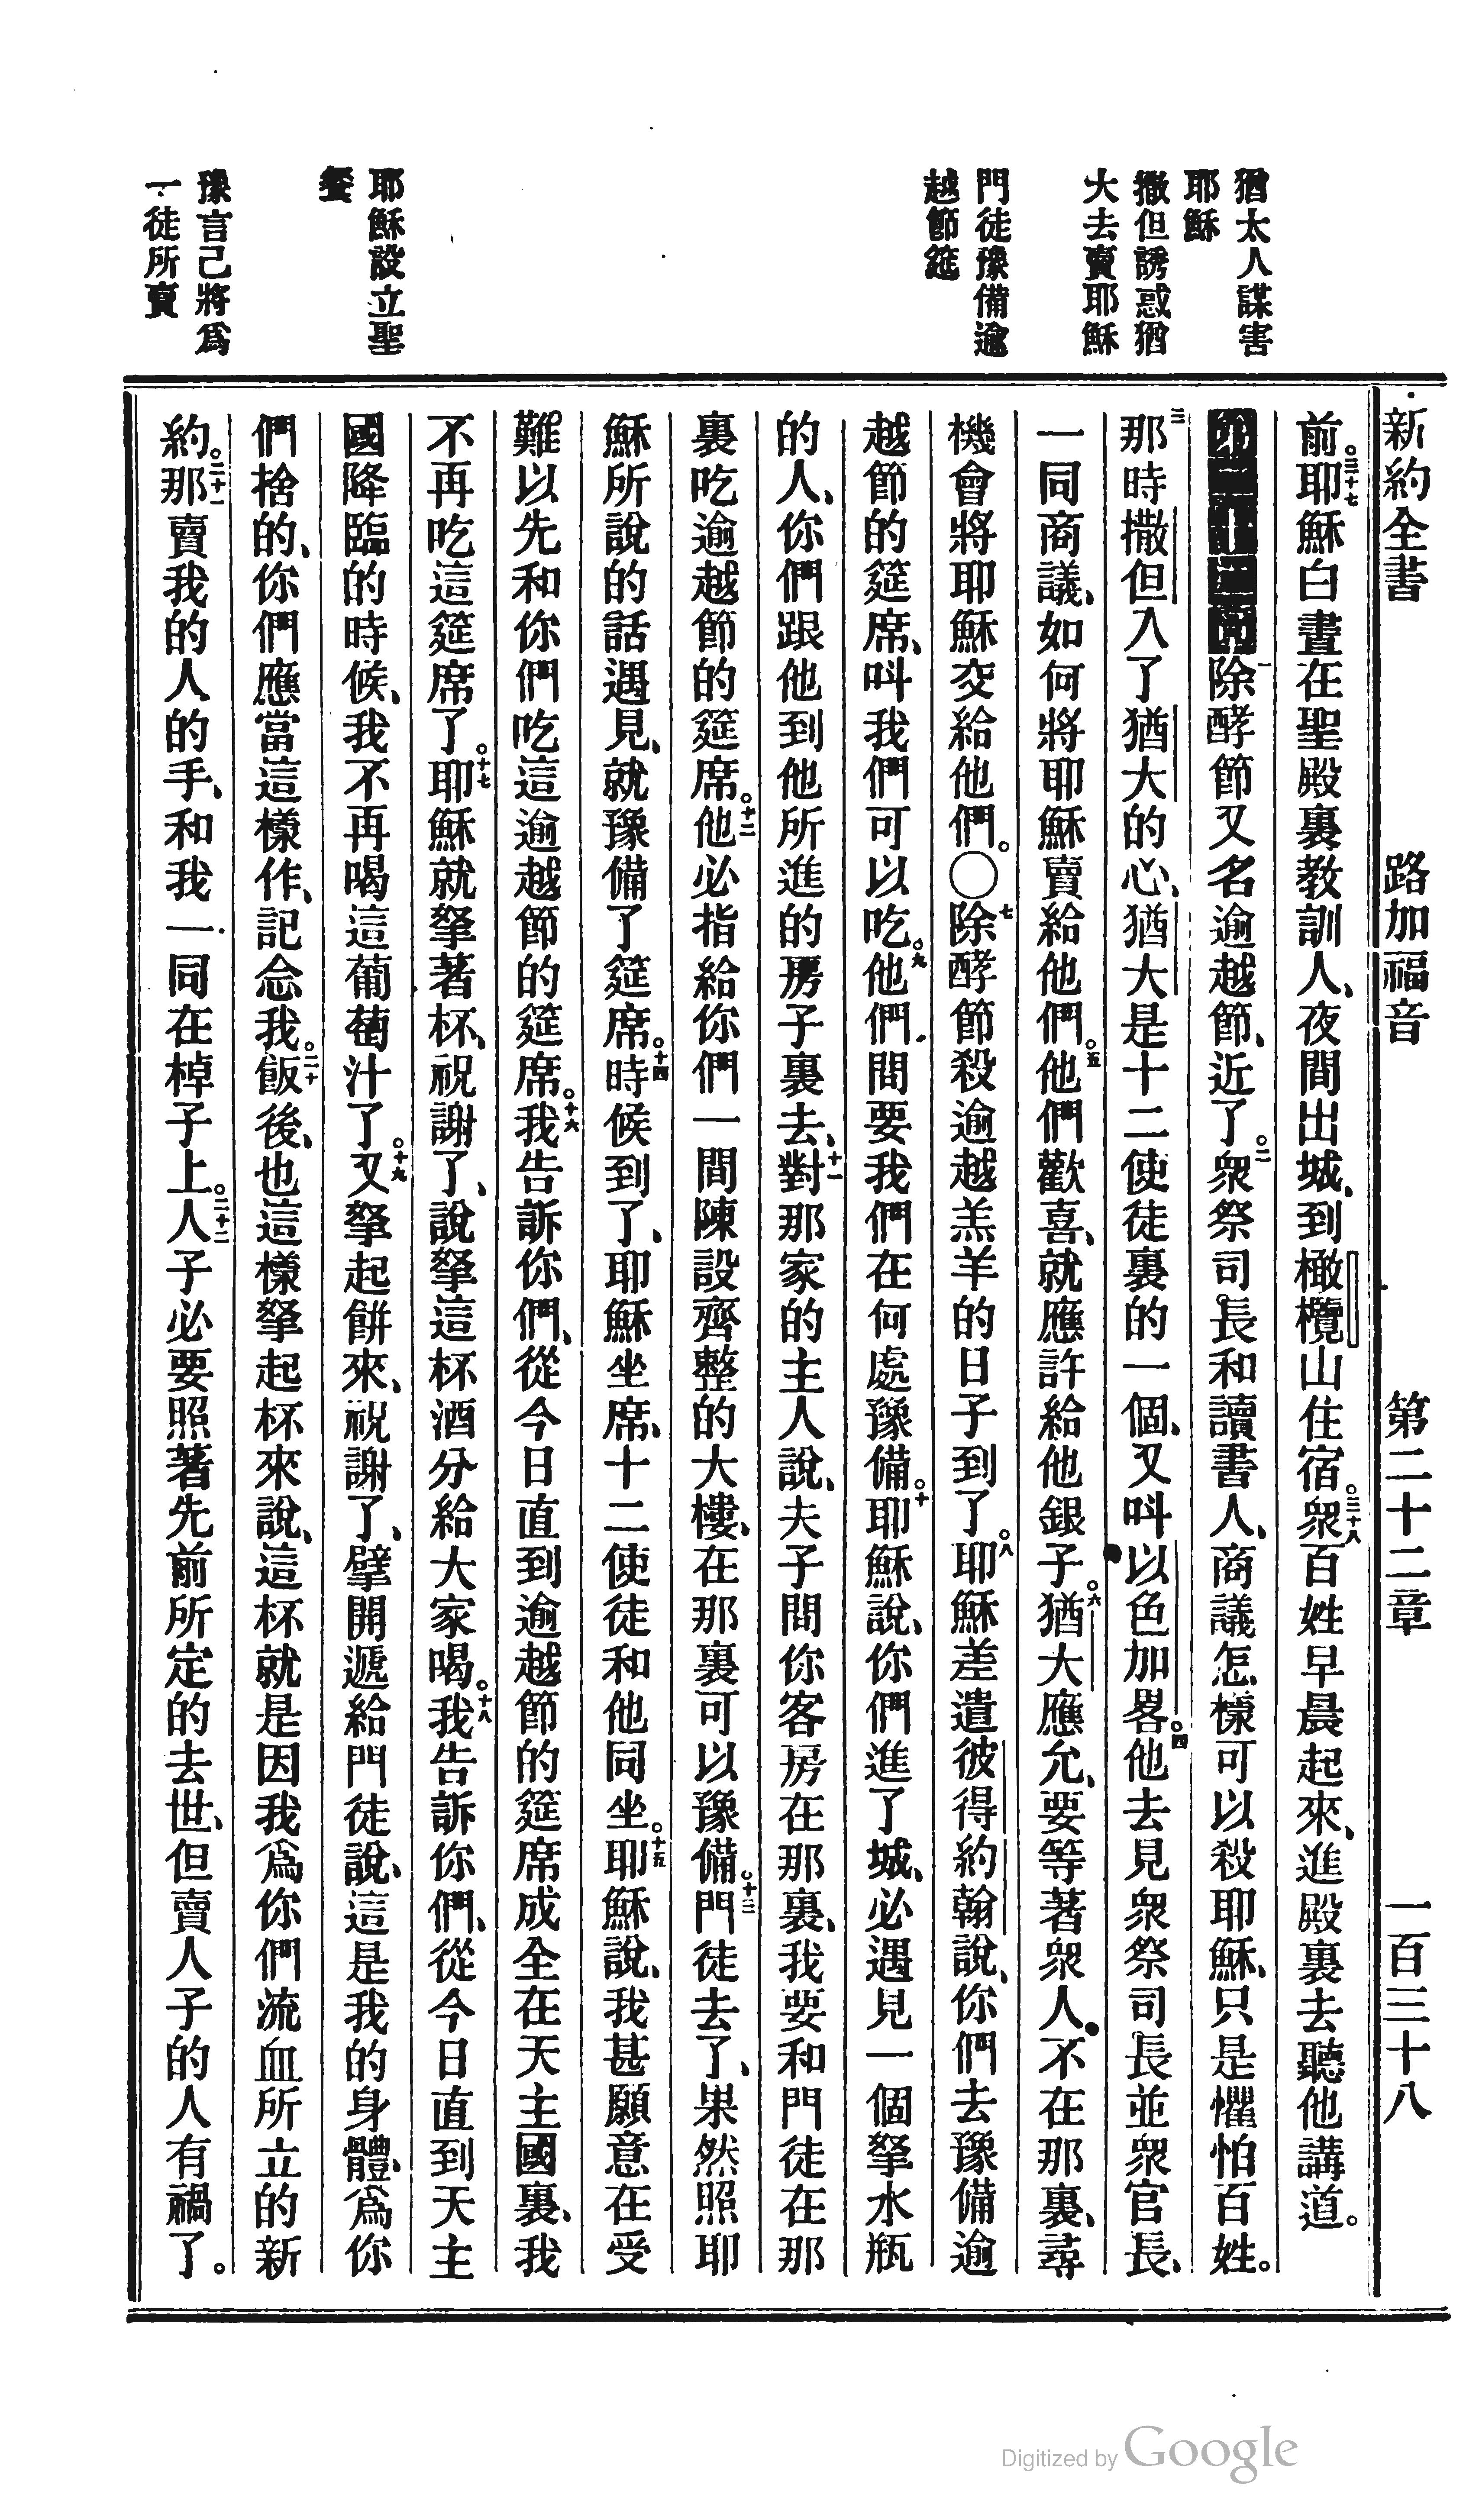 新約全書 路加福音 第二十二章 一百三十八
猶太人謀害
耶穌
撒但誘惑猶
大去賣耶穌
門徒豫備逾
越節筵
耶穌設立聖
餐
豫言己將爲
一徒所賣
前。三十七耶穌白晝在聖殿裏教訓人、夜間出城、到橄欖山住宿。三十八衆百姓早晨起來、進殿裏去聽他講道。
第二十二章一除酵節又名逾越節、近了。二衆祭司長和讀書人、商議怎樣可以殺耶穌、只是懼怕百姓。
三那時撒但入了猶大的心、猶大是十二使徒裏的一個、又呌以色加畧。四他去見衆祭司長並衆官長、
一同商議、如何將耶穌賣給他們。五他們歡喜、就應許給他銀子。六猶大應允、要等著衆人不在那裏、尋
機會將耶穌交給他們。〇七除酵節殺逾越羔羊的日子到了。八耶穌差遣彼得約翰說、你們去豫備逾
越節的筵席、呌我們可以吃。九他們問要我們在何處豫備。十耶穌說、你們進了城、必遇見一個拏水瓶
的人、你們跟他到他所進的房子裏去、十一對那家的主人說、夫子問你客房在那裏、我要和門徒在那
裏吃逾越節的筵席。十二他必指給你們一間陳設齊整的大樓、在那裏可以豫備。十三門徒去了、果然照耶
穌所說的話遇見、就豫備了筵席。十四時候到了、耶穌坐席、十二使徒和他同坐。十五耶穌說、我甚願意在受
難以先和你們吃這逾越節的筵席。十六我告訴你們、從今日直到逾越節的筵席成全在天主國裏、我
不再吃這筵席了。十七耶穌就拏著杯、祝謝了、說拏這杯酒分給大家喝。十八我告訴你們、從今日直到天主
國降臨的時候、我不再喝這葡萄汁了。十九又拏起餅來、祝謝了、擘開遞給門徒說、這是我的身體、爲你
們捨的、你們應當這樣作、記念我。二十飯後、也這樣拏起杯來說、這杯就是因我爲你們流血所立的新
約。二十一那賣我的人的手、和我一同在棹子上。二十二人子必要照著先前所定的去世、但賣人子的人有禍了。
Digitized by Google